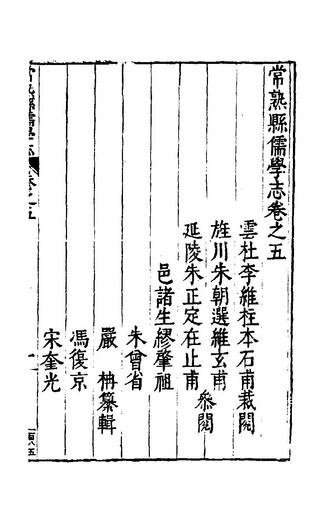 常熟縣儒學志卷之五
雲杜李維柱本石甫裁閱
旌川朱朝選維玄甫
延陵朱正定在止甫
叅閱
邑諸生繆肇祖
朱曾省
嚴　柟纂輯
馮復京
宋奎光
常熟縣儒學志
卷之五
一